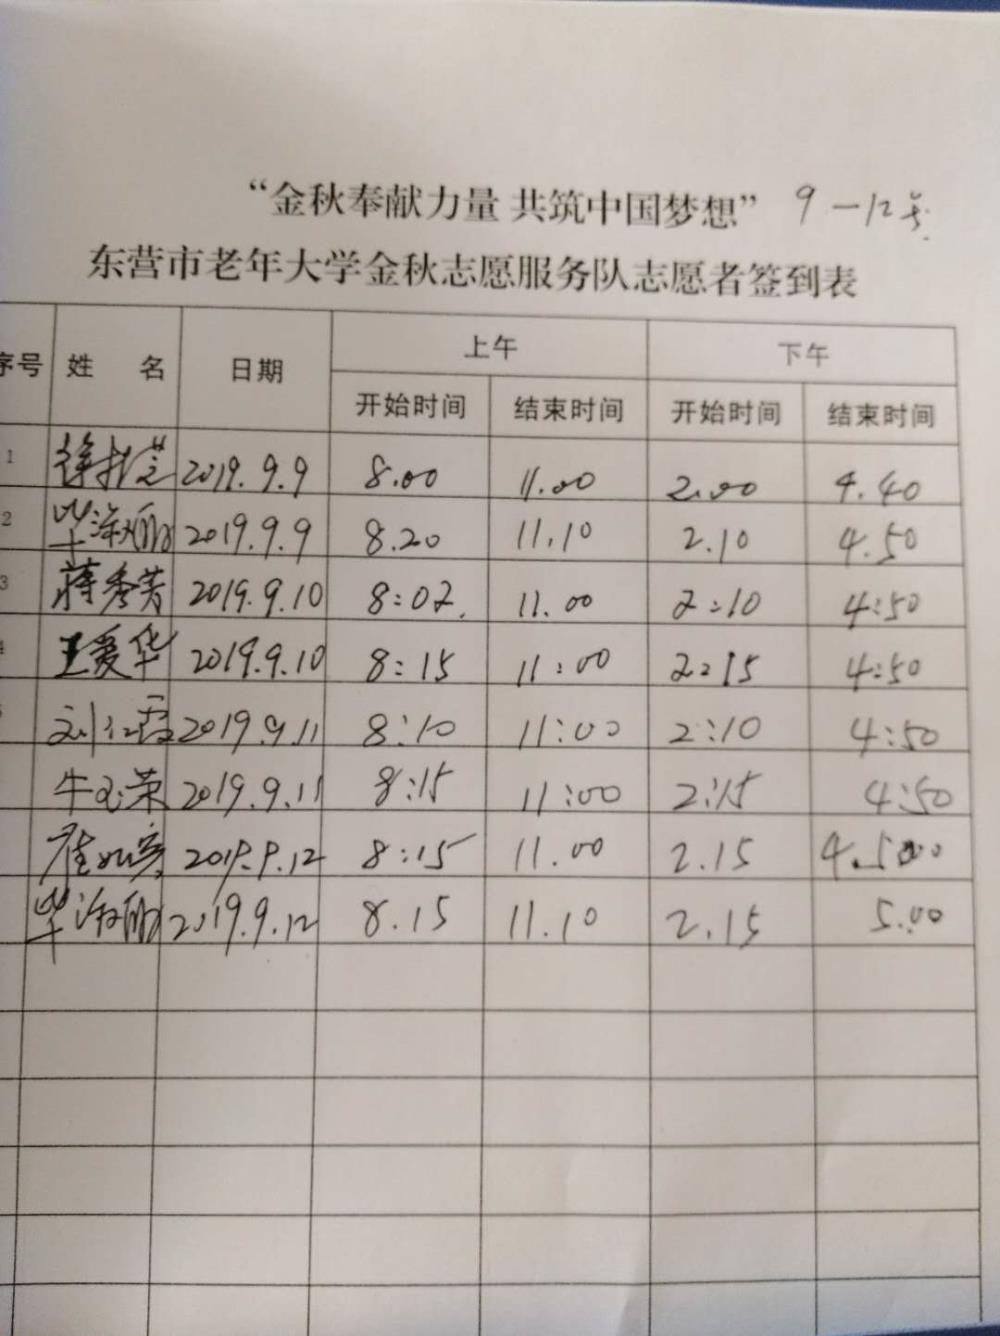 “金秋奉献力量 共筑中国梦想” 9—12号.
东营市老年大学金秋志愿服务队志愿者签到表
序号 姓 名 日期 上午 下午
开始时间 结束时间 开始时间 结束时间
1 2019.9.9 8.00 11.00 2.00 4.40
2 毕淑丽 2019.9.9 8.20 11.10 2.10 4.50
3 蒋秀芳 2019.9.10 8:02. 11.00 2:10 4:50
4 王爱华 2019.9.10 8:15 11:00 2:15 4:50
5 刘仁霞 2019.9.11 8:10 11:00 2:10 4:50
牛玉荣 2019.9.11 8:15 11:00 2:15 4:50
2019.9.12 8:15 11.00 2.15
毕淑丽 2019.9.12 8.15 11.10 2.15 5.00